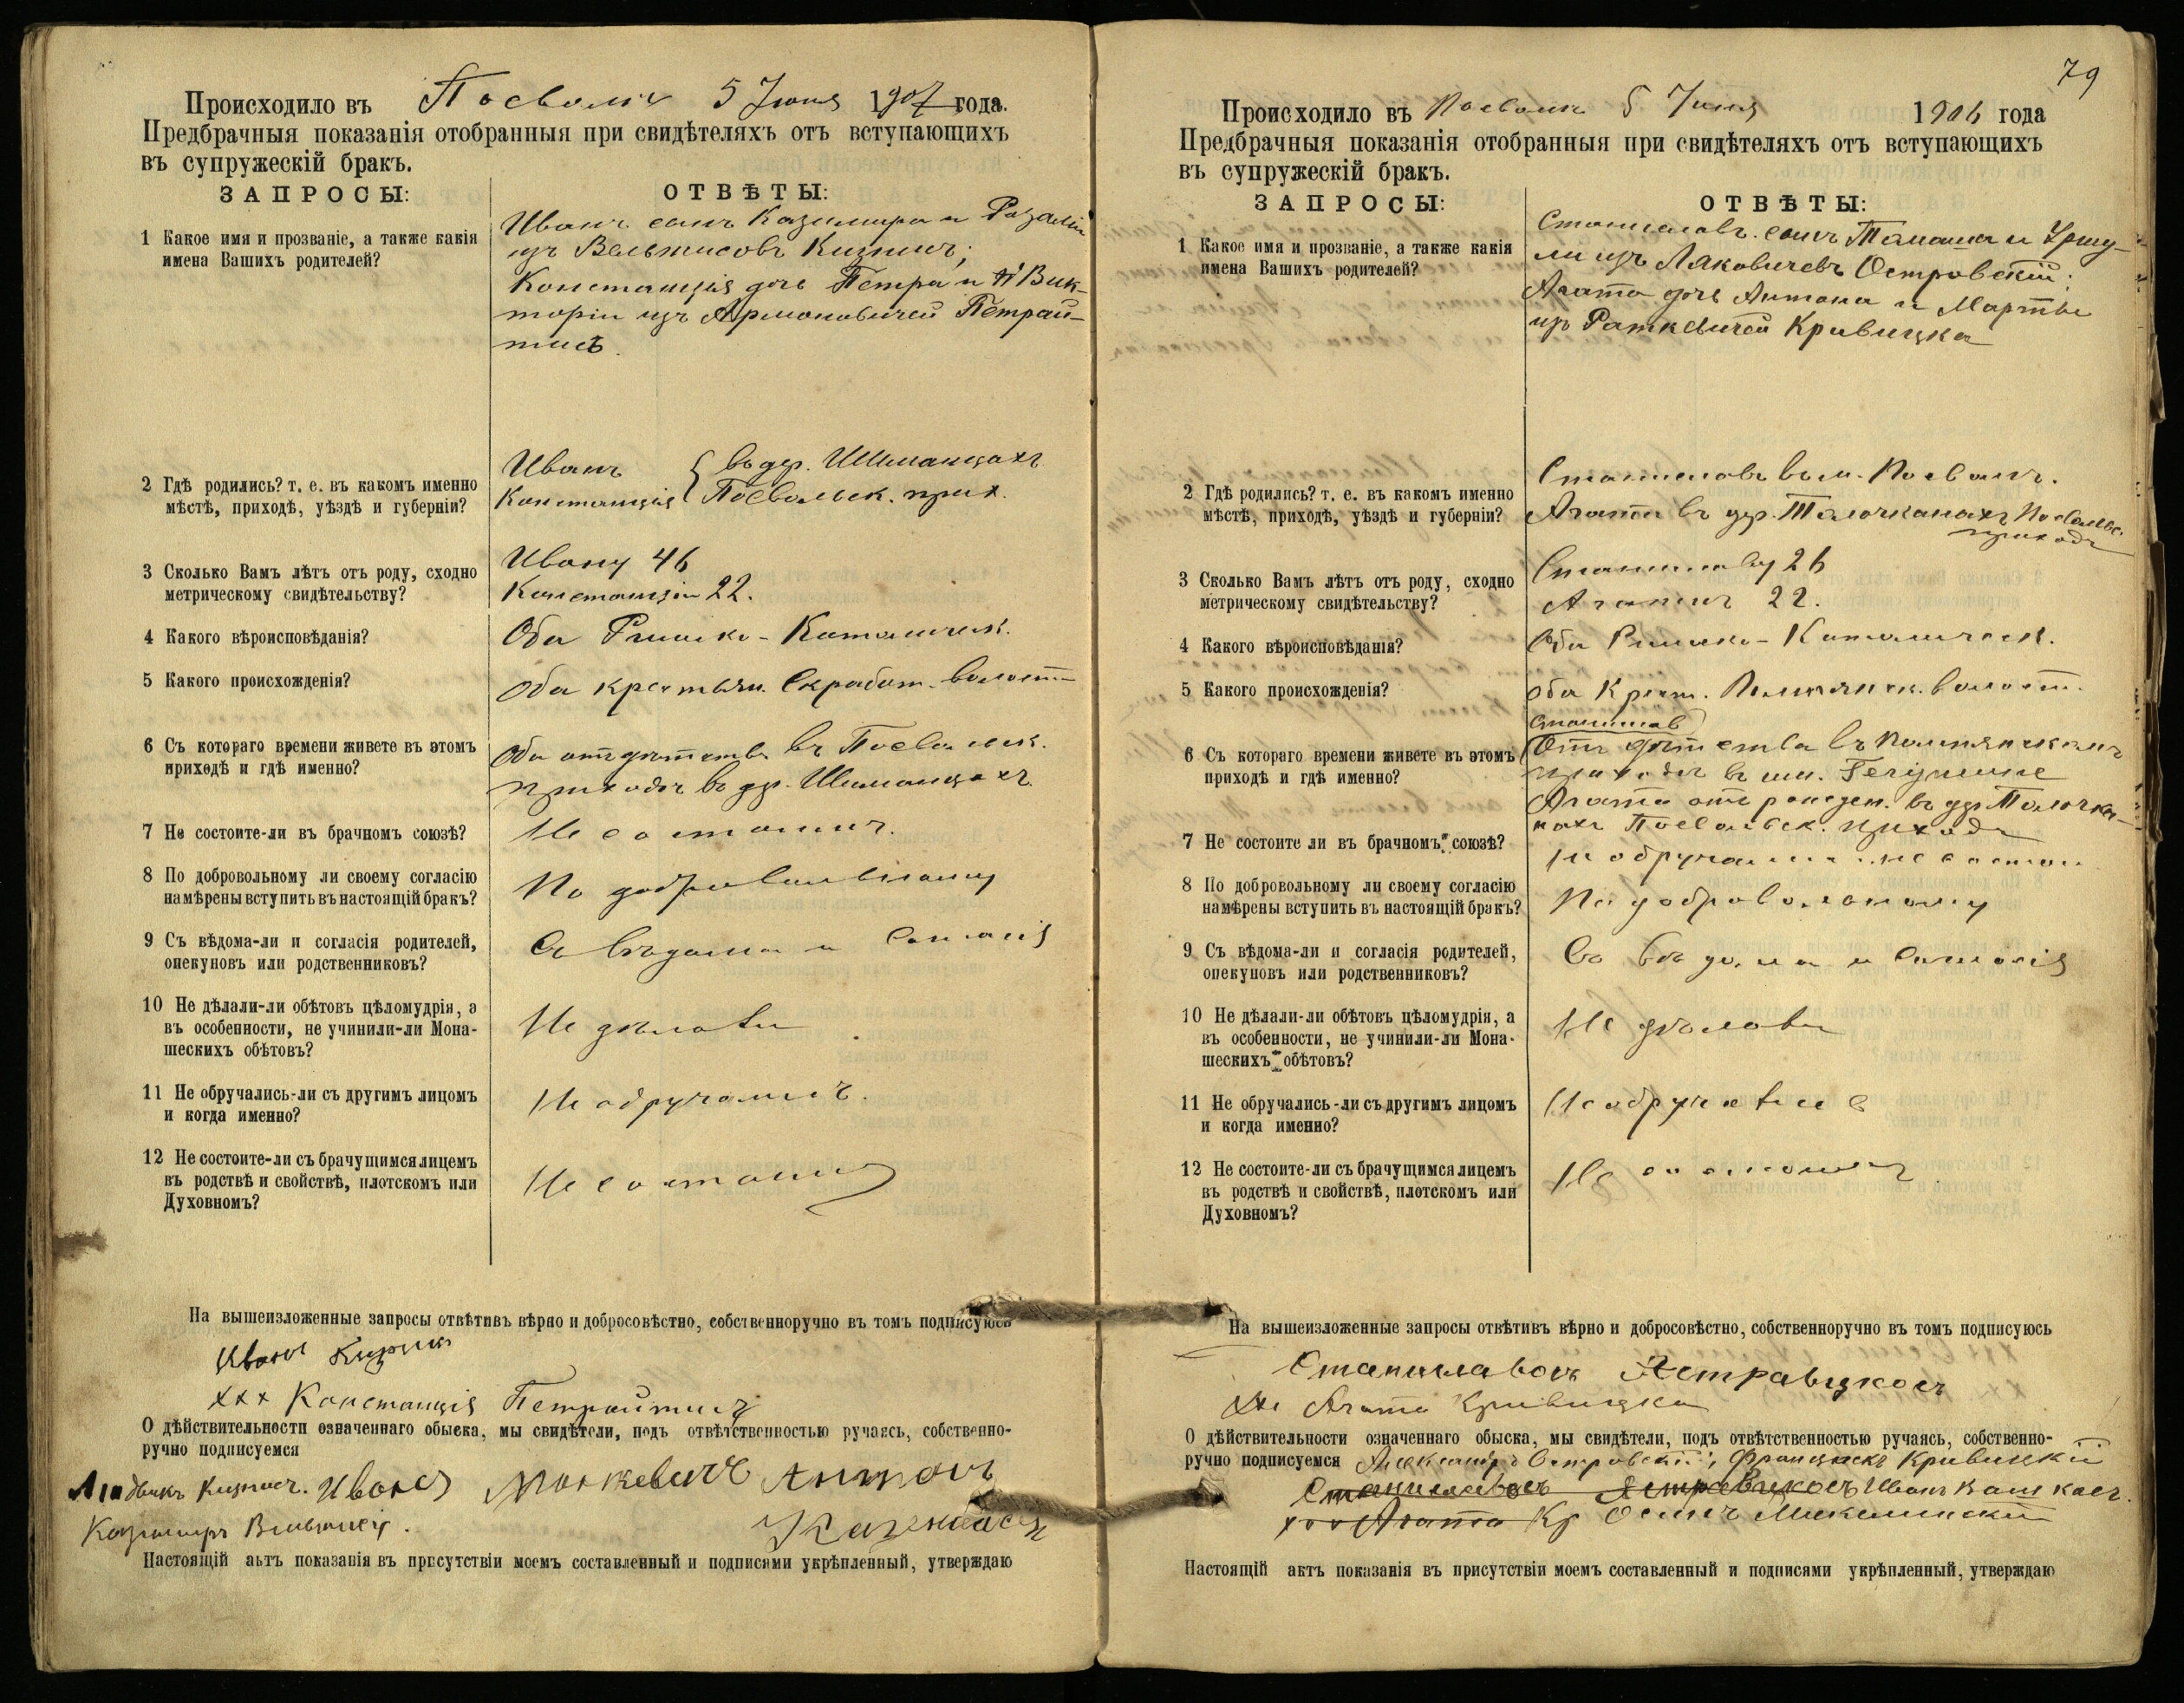 Происходило въ Посволѣ 5 Іюня 1907 года.
Предбрачныя показанія отобранныя при свидѣтеляхъ отъ вступающихъ
въ супружескій бракъ.
ЗАПРОСЫ:
ОТВѢТЫ:
1 Какое имя и прозваніе, а также какія
имена Вашихъ родителей?
Иванъ сынъ Казимира и Розаліи
изъ Вельжисовъ
Констанція дочь Петра и Вик-
торіи изъ Армоновичей Петрай-
тисъ.
2 Гдѣ родились? т. е. въ какомъ именно
мѣстѣ, приходѣ, уѣздѣ и губерніи?
Иванъ { въ дер. Шиманцахъ
Констанція { Посвольск. прих.
3 Сколько Вамъ лѣтъ отъ роду, сходно
метрическому свидѣтельству?
Ивану 46
Констанціи 22.
4 Какого вѣроисповѣданія?
Оба Римско-Католическ.
5 Какого происхожденія?
Оба крестьян. Скработ. волости
6 Съ котораго времени живете въ этомъ
приходѣ и гдѣ именно?
Оба отъ дѣтства въ Посвольск.
приходѣ въ дер. Шиманцахъ.
7 Не состоите-ли въ брачномъ союзѣ?
Не состоимъ.
8 По добровольному ли своему согласію
намѣрены вступить въ настоящій бракъ?
По добровольному
9 Съ вѣдома-ли и согласія родителей,
опекуновъ или родственниковъ?
Съ вѣдома и согласія
10 Не дѣлали-ли обѣтовъ цѣломудрія, а
въ особенности, не учинили-ли Мона-
шескихъ обѣтовъ?
Не дѣлали
11 Не обручались-ли съ другимъ лицомъ
и когда именно?
Не обручались.
12 Не состоите-ли съ брачущимся лицемъ
въ родствѣ и свойствѣ, плотскомъ или
Духовномъ?
Не состоимъ
На вышеизложенные запросы отвѣтивъ вѣрно и добросовѣстно, собственноручно въ томъ подписуюсь
Иванъ
xxx Констанція Петрайтисъ
О дѣйствительности означеннаго обыска, мы свидѣтели, подъ отвѣтственностью ручаясь, собственно-
ручно подписуемся
Людвикъ Иванъ Моркевичъ Антонъ
Казимиръ
Настоящій актъ показанія въ присутствіи моемъ составленный и подписями укрѣпленный, утверждаю
79
Происходило въ Посволѣ 5 Іюня 1906 года
Предбрачныя показанія отобранныя при свидѣтеляхъ отъ вступающихъ
въ супружескій бракъ.
ЗАПРОСЫ:
ОТВѢТЫ:
1 Какое имя и прозваніе, а также какія
имена Вашихъ родителей?
Станиславъ сынъ Томаша и Уршу-
ли изъ Ляховичевъ Островскій;
Агата дочь Антона и Марты
изъ Раткевичей Кривицка
2 Гдѣ родились? т. е. въ какомъ именно
мѣстѣ, приходѣ, уѣздѣ и губерніи?
Станиславъ въ м. Посволѣ.
Агата въ дер. Толочканахъ Посвольс.
приходѣ
3 Сколько Вамъ лѣтъ отъ роду, сходно
метрическому свидѣтельству?
Станиславу 26
Агатѣ 22.
4 Какого вѣроисповѣданія?
Оба Римско-Католическ.
5 Какого происхожденія?
Оба Крест. волост.
6 Съ котораго времени живете въ этомъ
приходѣ и гдѣ именно?
Станислав
Отъ дѣтства въ
приходѣ въ им.
Агата отъ рожден. въ дер. Толочка-
нахъ Посвольск. прихода
7 Не состоите ли въ брачномъ союзѣ?
8 По добровольному ли своему согласію
намѣрены вступить въ настоящій бракъ?
По добровольному
9 Съ вѣдома-ли и согласія родителей,
опекуновъ или родственниковъ?
Съ вѣдома и согласія
10 Не дѣлали-ли обѣтовъ цѣломудрія, а
въ особенности, не учинили-ли Мона-
шескихъ обѣтовъ?
Не дѣлали
11 Не обручались-ли съ другимъ лицомъ
и когда именно?
Не обручались
12 Не состоите-ли съ брачущимся лицемъ
въ родствѣ и свойствѣ, плотскомъ или
Духовномъ?
Не состоимъ
На вышеизложенные запросы отвѣтивъ вѣрно и добросовѣстно, собственноручно въ томъ подписуюсь
Станиславосъ Астравцкосъ
xxx Агата Кривицка
О дѣйствительности означеннаго обыска, мы свидѣтели, подъ отвѣтственностью ручаясь, собственно-
ручно подписуемся Александръ Островскій, Францискъ Кривицкій
Станиславосъ Иванъ
xxx Агата Кр Осипъ
Настоящій актъ показанія въ присутствіи моемъ составленный и подписями укрѣпленный, утверждаю